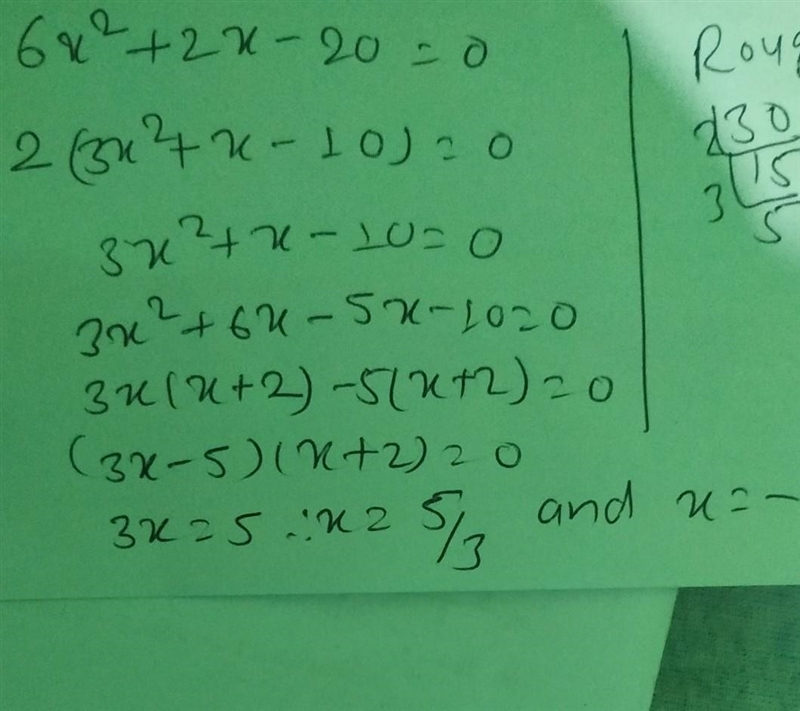 6x²+2x-20=0
2(3x²+x-10)=0
3x²+x-10=0
3x²+6x-5x-10=0
3x(x+2)-5(x+2)=0
(3x-5)(x+2)=0
3x=5 ∴x=5/3 and x=-
30
3 15
5